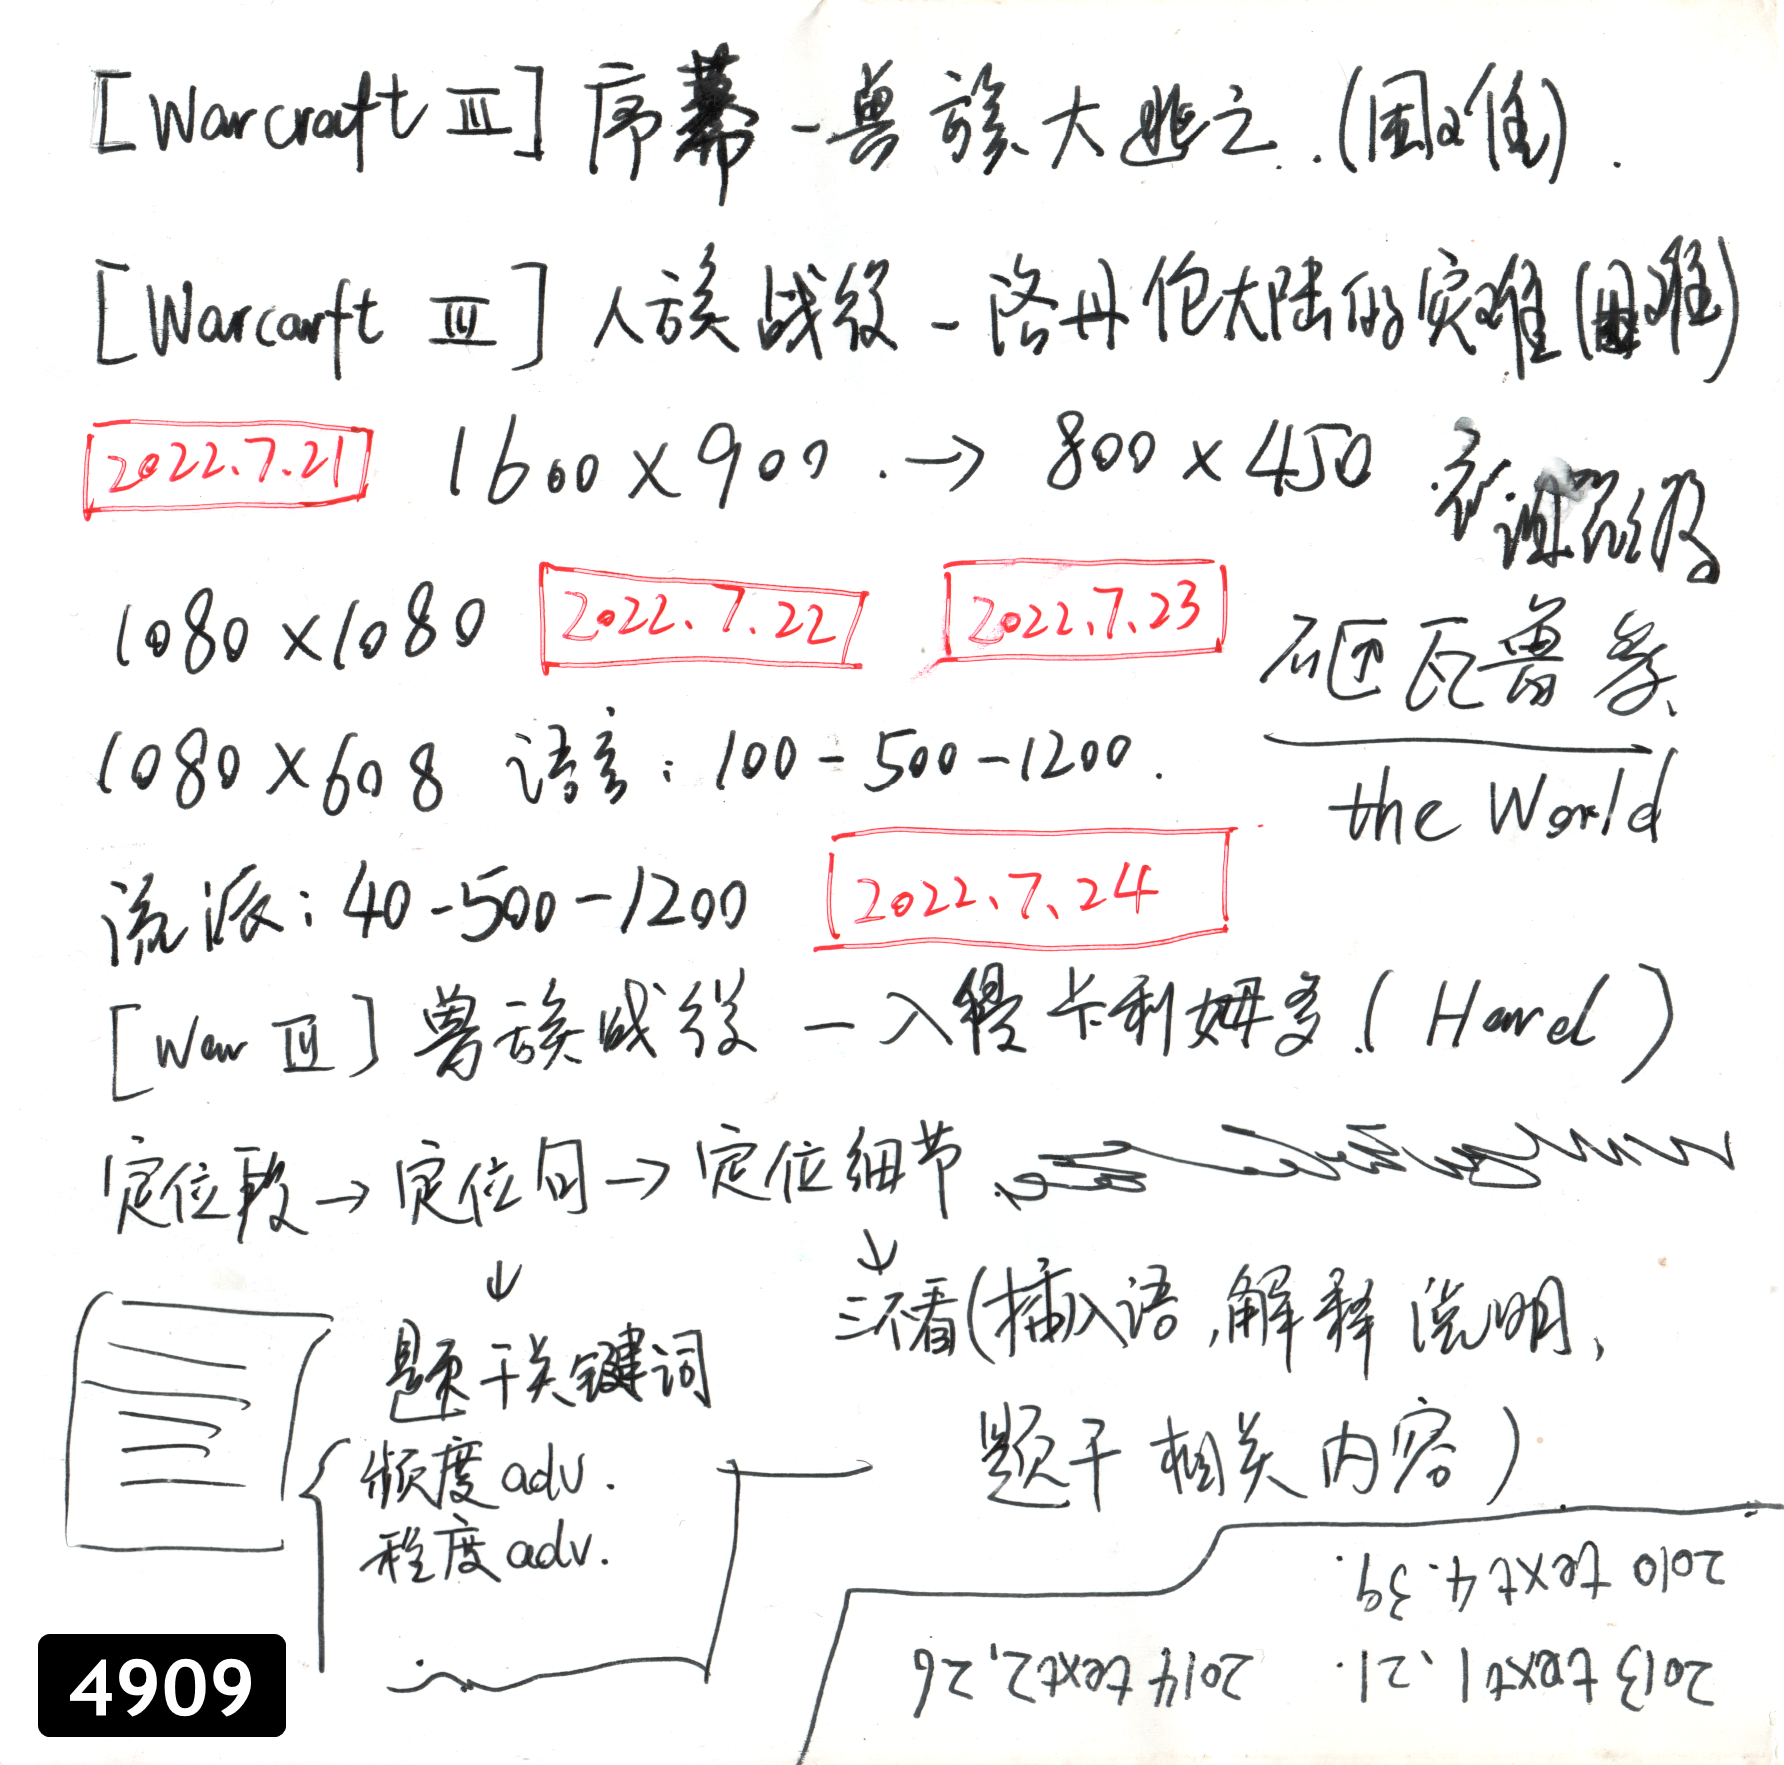 [Warcraft III] 序幕-兽族大逃亡.(困难).
[Warcarft III] 人族战役-洛丹伦大陆的灾难(困难)
2022.7.21 1600×900.→800×450
1080×1080 2022.7.22 2022.7.23
砸瓦鲁多
1080×608 语言:100-500-1200.
the World
流派:40-500-1200 2022.7.24
[War III] 兽族战役-入侵卡利姆多.(Hard)
定位段→定位句→定位细节
↓ ↓
三不看(插入语,解释说明,
题干关键词
题干相关内容)
频度adv.
程度adv.
2010 text 4.39.
2013 text 1、21. 2014 text2,26
4909